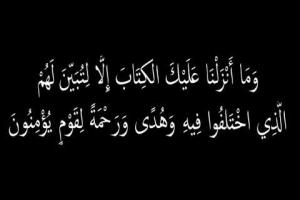 وَمَا أَنْزَلْنَا عَلَيْكَ الكِتَابَ إِلَّا لِتُبَيِّنَ لَهُمْ
الَّذِي اخْتَلَفُوا فِيهِ وَهُدًى وَرَحْمَةً لِقَوْمٍ يُؤْمِنُونَ